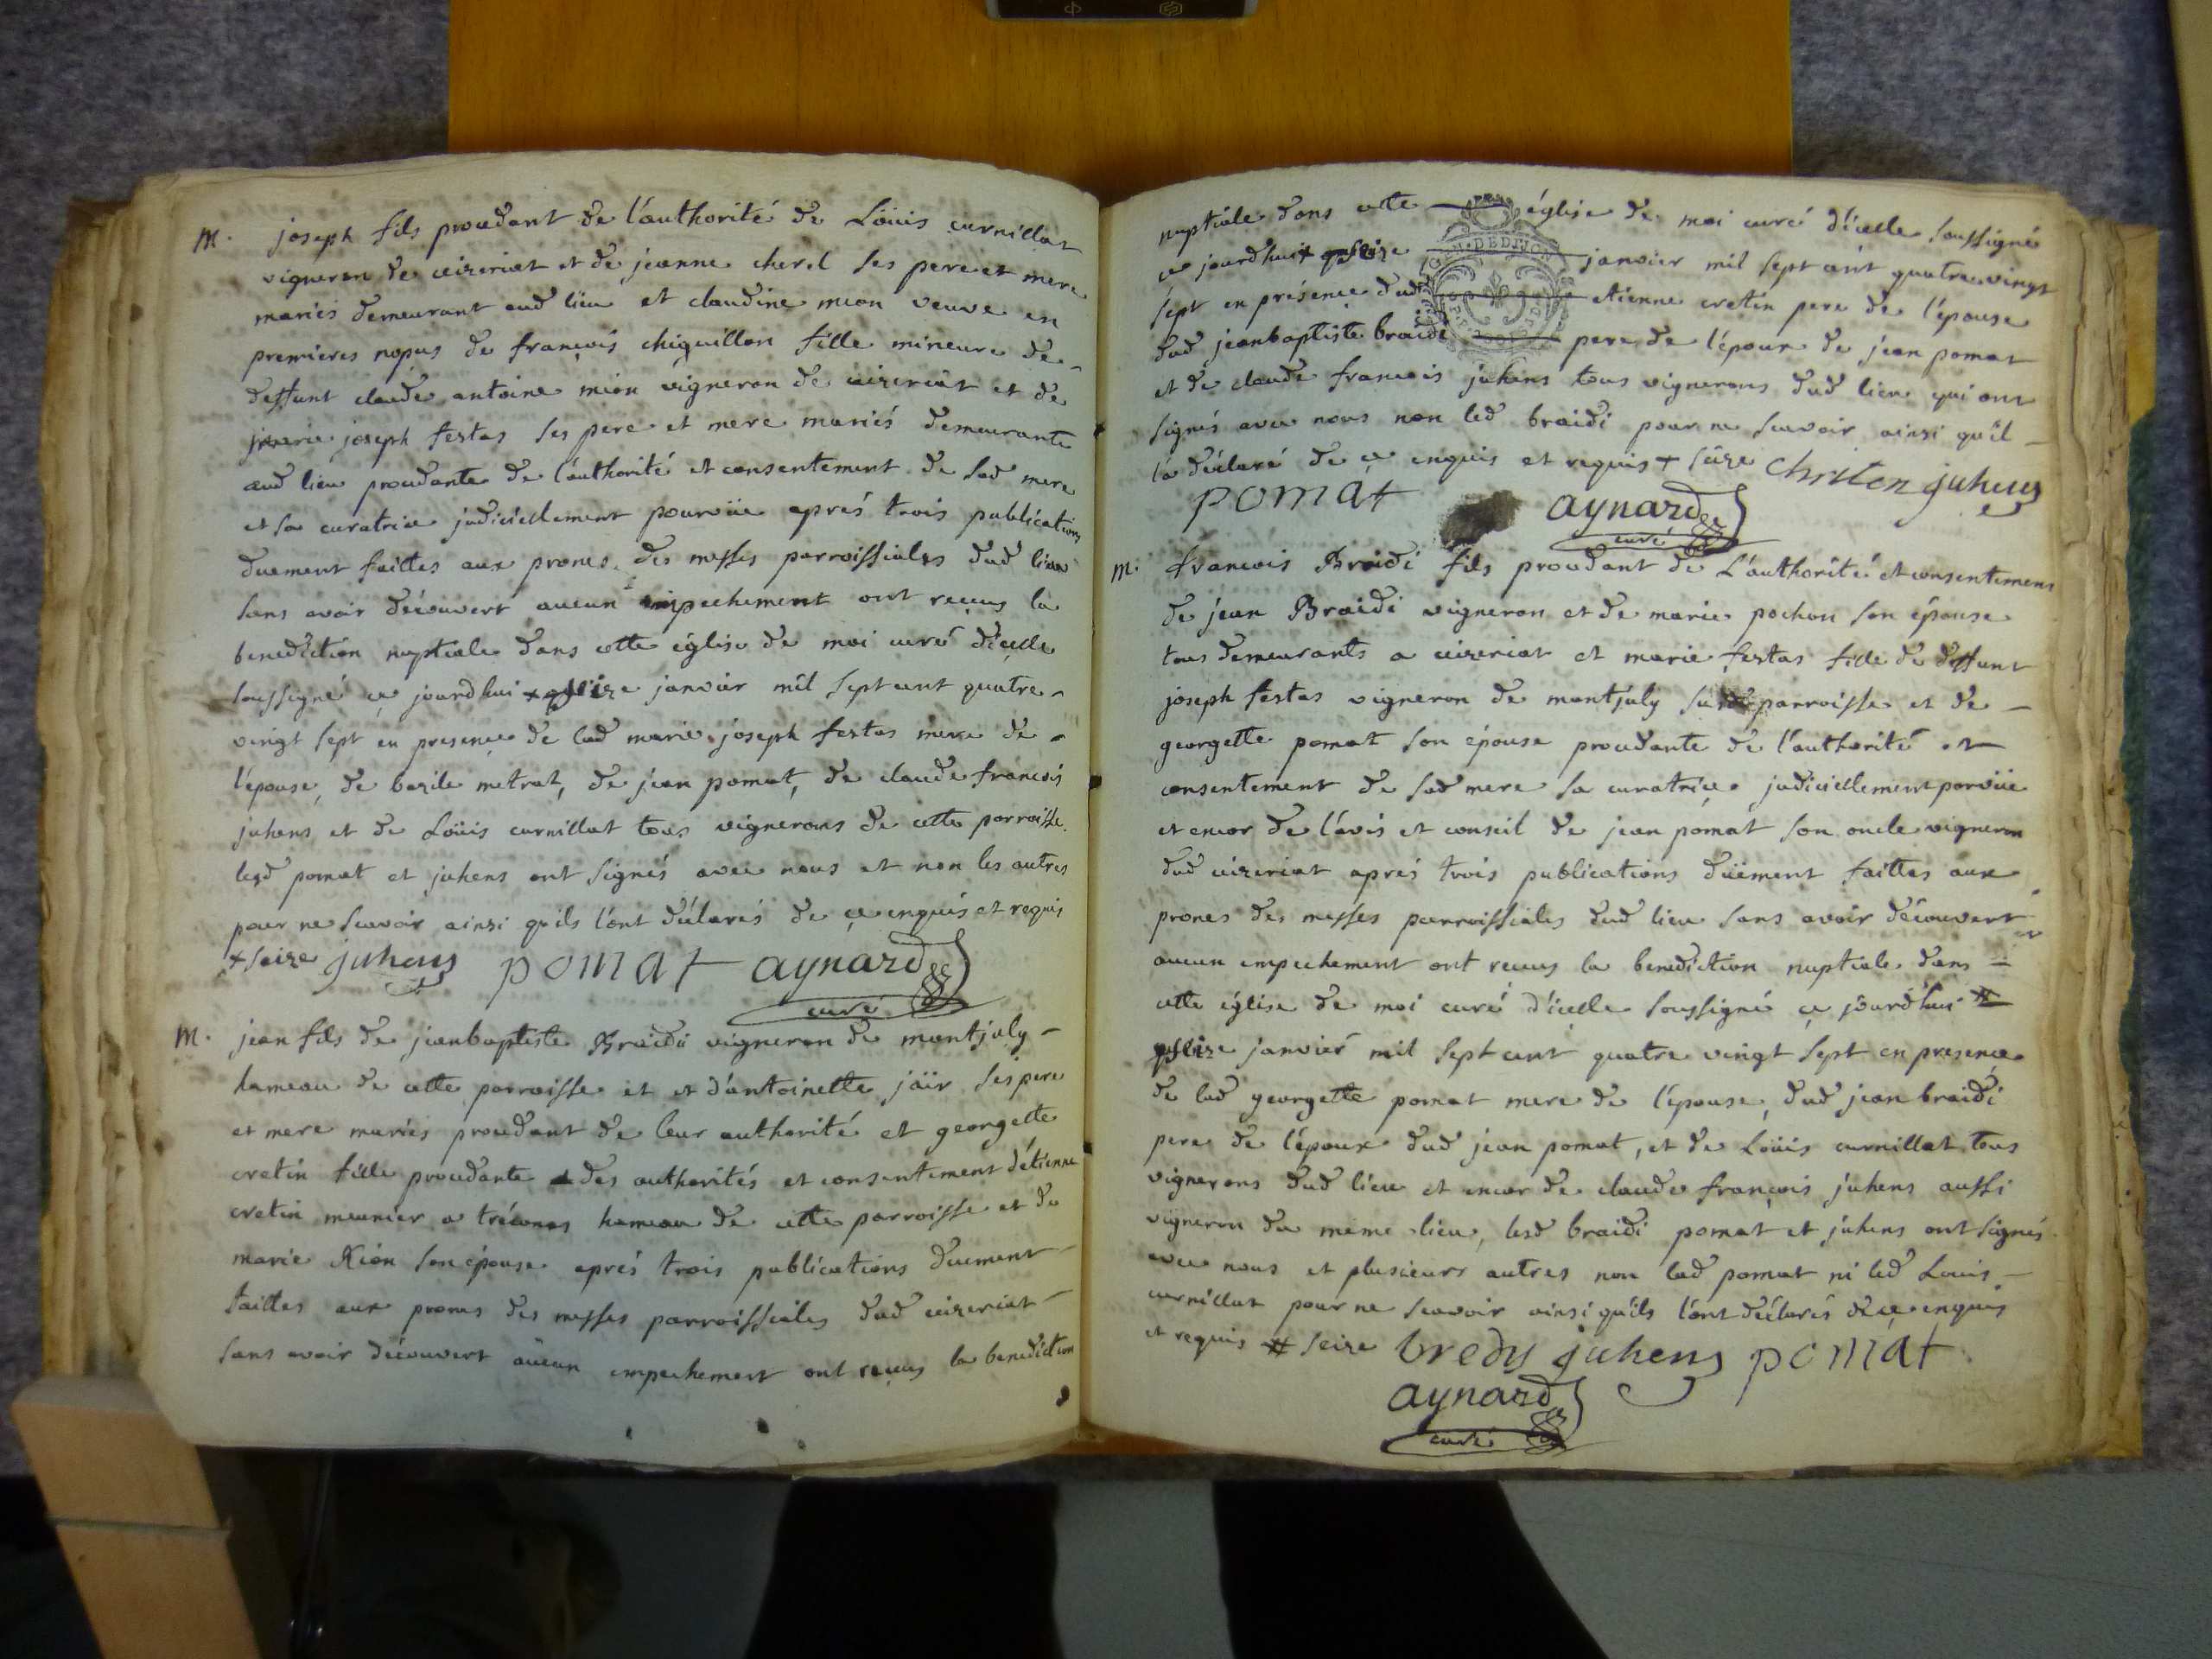 M. joseph fils procedant de l'authorité de Loüis curnillat
vigneron de ceizeriat et de jeanne cherel ses pere et mere
mariés demeurant aud lieu et claudine mion veuve en
premieres nopces de françois chiquillon fille mineure de
deffunt claude antoine mion vigneron de ceizeriat et de
marie joseph festas ses pere et mere mariés demeurante
aud lieu procedante de l'authorité et consentement de sad mere
et sa curatrice judiciellement pourvüe aprés trois publications
duement faittes aux prones des messes parroissiales dud lieu
sans avoir découvert aucun empechement ont reçus la
benediction nuptiale dans cette église de moi curé d'icelle
soussigné ce jourdhui + janvier mil sept cent quatre-
vingt sept en presence de lad marie joseph festas mere de
l'épouse, de bazile metrat, de jean pomat, de claude francois
juhens et de Loüis curnillat tous vignerons de cette parroisse
lesd pomat et juhens ont signés avec nous et non les autres
pour ne scavoir ainsi qu'ils l'ont déclarés de ce enquis et requis
+ seize juhens pomat aynard
curé
M. jean fils de jeanbaptiste Braidi vigneron de montjuly
hameau de cette parroisse et et d'antoinette jaïr ses pere
et mere mariés procedant de leur authorité et georgette
cretin fille procedante des authorités et consentement d'étienne
cretin meunier a tréconas hameau de cette parroisse et de
marie son épouse aprés trois publications duement
faittes aux prones des messes parroissiales dud ceizeriat
sans avoir découvert aucun empechement ont reçus la benediction
nuptiale dans cette église de moi curé d'icelle soussigné
ce jourdhui + janvier mil sept cent quatre vingt
sept en présence dud etienne cretin pere de l'épouse
dud jeanbaptiste braidi pere de l'époux de jean pomat
et de claude francois juhens tous vignerons dud lieu qui ont
signés avec nous non led braidi pour ne scavoir ainsi qu'il
l'a déclaré de ce enquis et requis + seize juhens
pomat aynard
curé
M. francois Braidi fils procedant de L'authorité et consentement
de jean Braidi vigneron et de marie pochon son épouse
tous demeurants a ceizeriat et marie festas fille de deffunt
joseph festas vigneron de montjuly parroisse et de
georgette pomat son épouse procedante de l'authorité et
consentement de sad mere sa curatrice judiciellement porvüe
et encor de l'avis et conseil de jean pomat son oncle vigneron
dud ceizeriat aprés trois publications düement faittes aux
prones des messes parroissiales dud lieu sans avoir découvert
aucun empechement ont recus la benediction nuptiale dans
cette église de moi curé d'icelle soussigné ce jourd'hui #
janvier mil sept cent quatre vingt sept en presence
de lad georgette pomat mere de l'épouse, dud jean braidi
pere de l'époux dud jean pomat, et de Loüis curnillat tous
vignerons dud lieu et encor de claude françois juhens aussi
vigneron du meme lieu, lesd braidi pomat et juhens ont signés
avec nous et plusieurs autres non lad pomat ni led Louis
curnillat pour ne scavoir ainsi qu'ils l'ont déclarés de ce enquis
et requis # seize bredy juhens pomat
aynard
curé